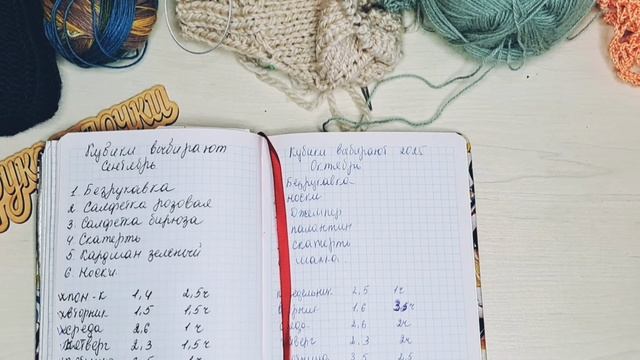 Кубики выбирают
Сентябрь
1. Безрукавка
2. Салфетка розовая
3. Салфетка бирюза
4 Скатерть
5. Кардиган зеленый
6. Носки
пон-к 1,4 2,5ч
вторник 1,5 1,5ч
среда 2,6 1ч
четверг 2,3 1,5ч
Кубики выбирают 2025
Октябрь
Безрукавка
носки
Джемпер
палантин
скатерть
шапка
недельник 2,5 1ч
орник 1,6 3,5ч
еда 2,6 2ч
верг 2,3 2ч
ница 3,5 2,5
ручки